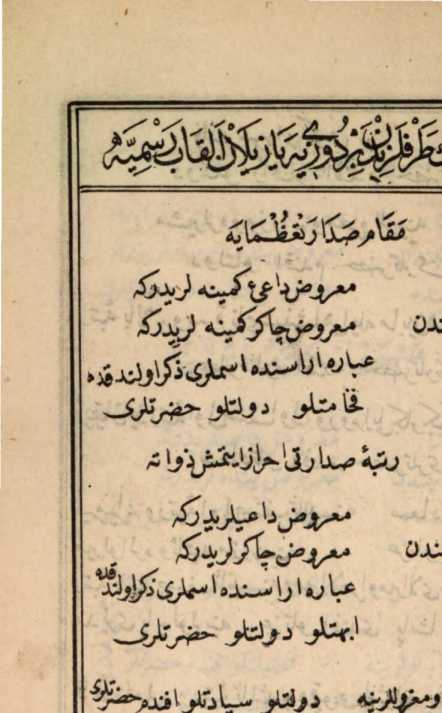 طرفلرندن بربرلرينه يازيلان القاب رسميه
مقام صدارتعظمايه
معروض داعئ كمينه لريدركه
ندن معروض چاكر كمينه لريدركه
عباره اراسنده اسملرى ذكر اولندقده
فخامتلو دولتلو حضرتلرى
رتبهٔ صدارتى احراز ايتمش ذواته
معروض داعيلريدركه
ندن معروض چاكرلريدركه
عباره اراسنده اسملرى ذكر اولندقده
ابهتلو دولتلو حضرتلرى
ومعزوللرينه دولتلو سيادتلو افندم حضرتلرى